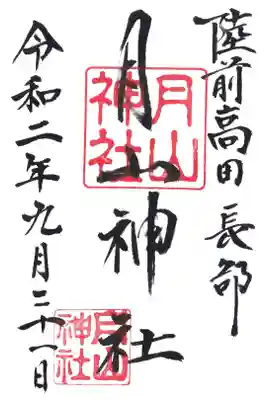 陸前高田 長部
月山神社
令和二年九月二十一日
月山神社
月山神社